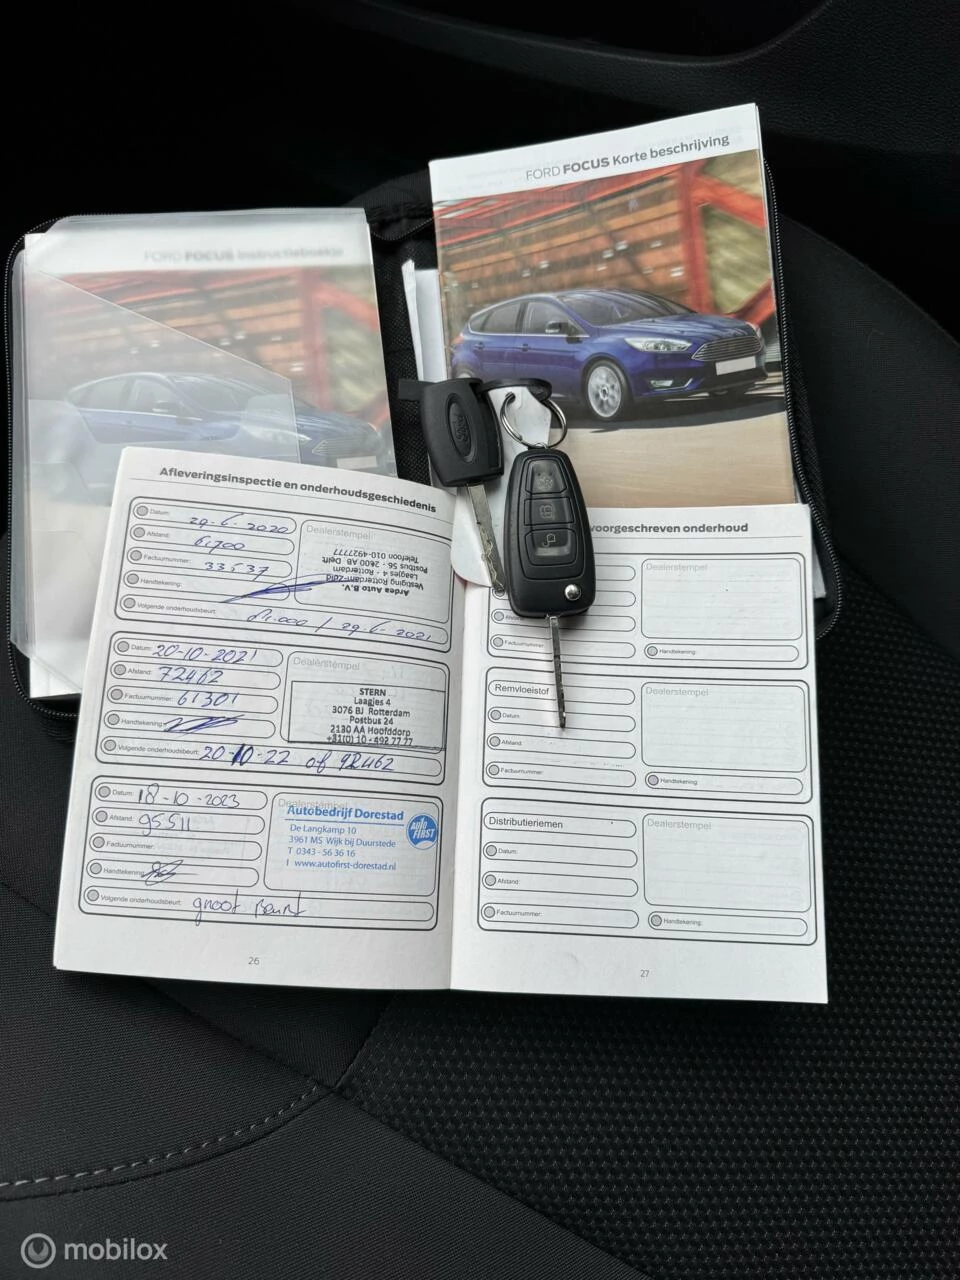 FORD FOCUS Korte beschrijving
FORD FOCUS Instructieboekje
Ford
Afleveringsinspectie en onderhoudsgeschiedenis
Datum: 29-6-2020
Afstand:
Factuurnummer: 33537
Handtekening:
Volgende onderhoudsbeurt: 29-6-2021
Dealerstempel
Ardea Auto B.V.
Vestiging Rotterdam-Zuid
Laagjes 4 - Rotterdam
Postbus 56 - 2600 AB Delft
Telefoon 010-4927777
Datum: 20-10-2021
Afstand: 72462
Factuurnummer: 61301
Handtekening:
Volgende onderhoudsbeurt: 20-10-22 of 92462
Dealerstempel
STERN
Laagjes 4
3076 BJ Rotterdam
Postbus 24
2130 AA Hoofddorp
+31(0) 10 - 492 77 77
Datum: 18-10-2023
Afstand: 95511
Factuurnummer:
Handtekening:
Volgende onderhoudsbeurt: groot beurt
Dealerstempel
Autobedrijf Dorestad
De Langkamp 10
3961 MS Wijk bij Duurstede
T 0343 - 56 36 16
I www.autofirst-dorestad.nl
AUTO FIRST
26
voorgeschreven onderhoud
Dealerstempel
Afstand:
Factuurnummer:
Handtekening:
Remvloeistof
Dealerstempel
Datum:
Afstand:
Factuurnummer:
Handtekening:
Distributieriemen
Dealerstempel
Datum:
Afstand:
Factuurnummer:
Handtekening:
27
mobilox